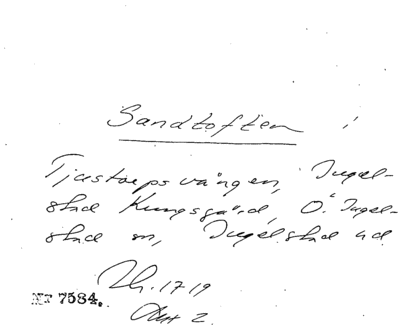 Sandtoften i
Tjustorpsvången, Ingel-
stad Kungsgård, Ö. Ingel-
stad sn, Ingelstad hd
Lh. 1719
Akt 2.
Nr 7584.